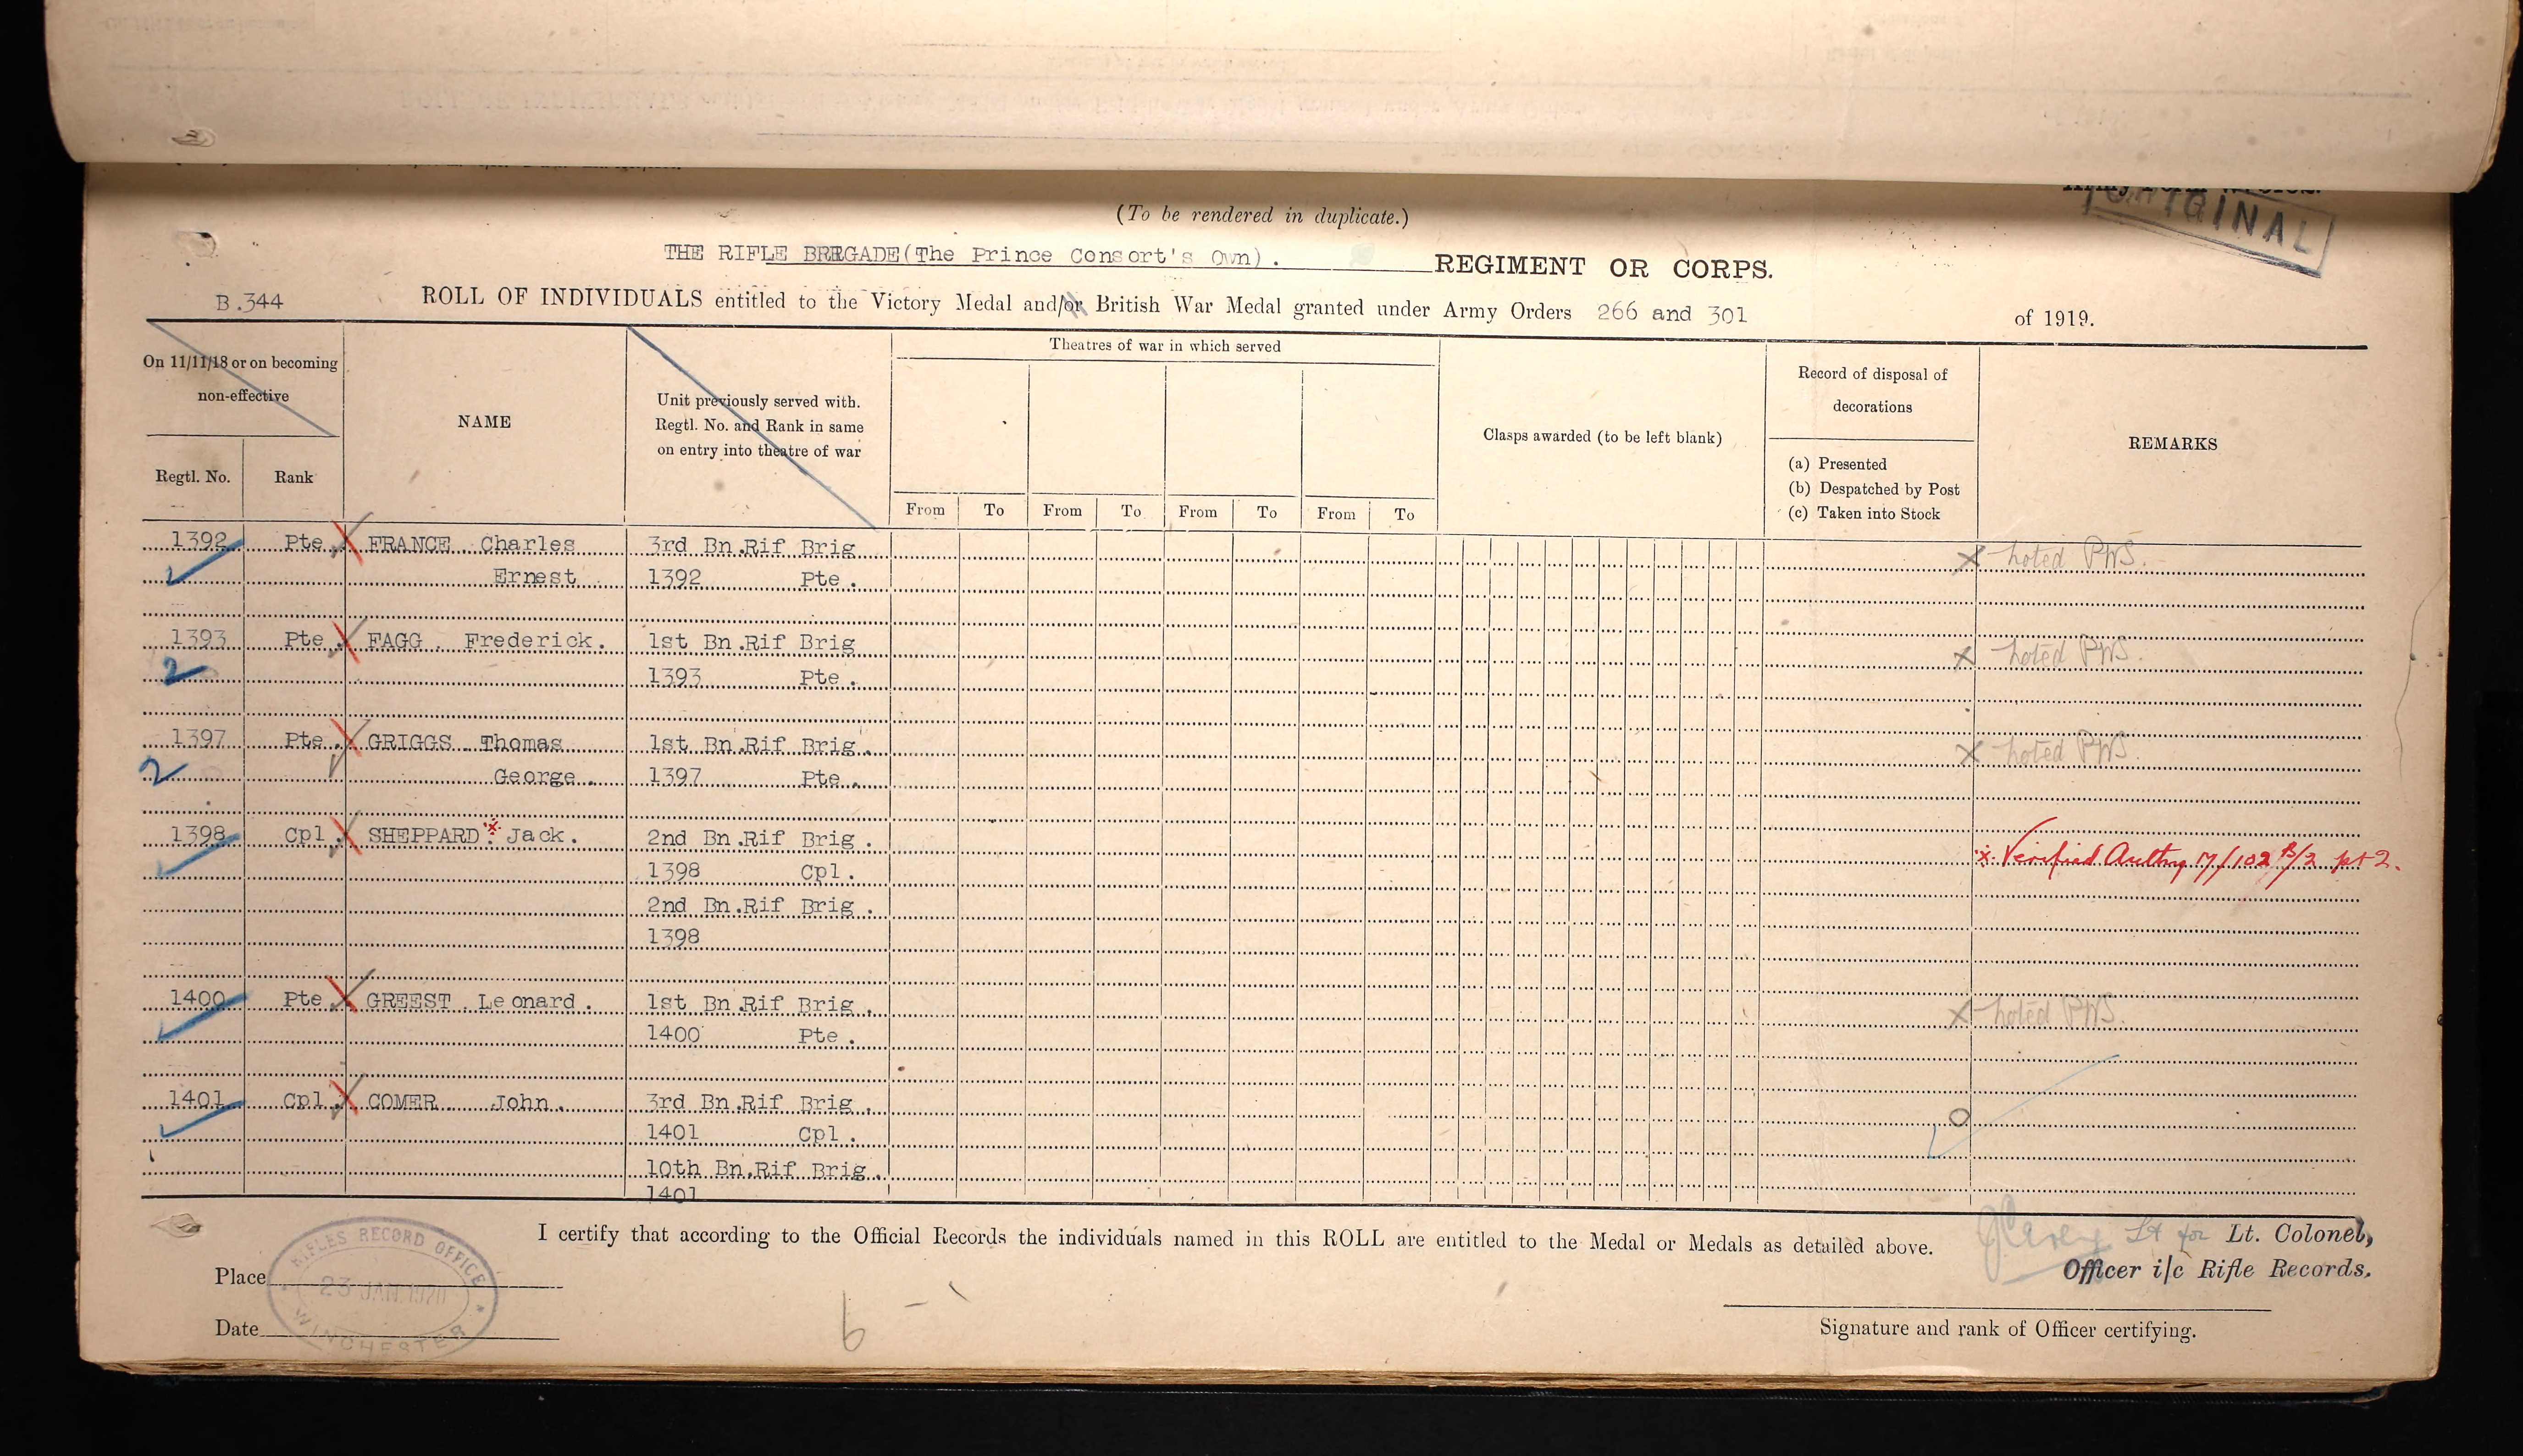 ORIGINAL
(To be rendered in duplicate.)
THE RIFLE BRIGADE(The Prince Consort's Own). REGIMENT OR CORPS.
B.344 ROLL OF INDIVIDUALS entitled to the Victory Medal and/or British War Medal granted under Army Orders 266 and 301 of 1919.
On 11/11/18 or on becoming non-effective
Regtl. No. Rank
NAME
Unit previously served with.
Regtl. No. and Rank in same
on entry into theatre of war
Theatres of war in which served
From To From To From To From To
Clasps awarded (to be left blank)
Record of disposal of
decorations
(a) Presented
(b) Despatched by Post
(c) Taken into Stock
REMARKS
1392 Pte. FRANCE Charles 3rd Bn.Rif Brig X noted PWS.
Ernest 1392 Pte.
1393 Pte. FAGG. Frederick. 1st Bn.Rif Brig X noted PWS.
2 1393 Pte.
1397 Pte. GRIGGS Thomas 1st Bn.Rif Brig. X noted PWS.
2 George. 1397 Pte.
1398 Cpl. SHEPPARD. Jack. 2nd Bn.Rif Brig. Verified 17/102 B/2 pt 2.
1398 Cpl.
2nd Bn.Rif Brig.
1398
1400 Pte. GREEST. Leonard. 1st Bn.Rif Brig. X noted PWS.
1400 Pte.
1401 Cpl. COMER John. 3rd Bn.Rif Brig. O
1401 Cpl.
10th Bn.Rif Brig.
1401
I certify that according to the Official Records the individuals named in this ROLL are entitled to the Medal or Medals as detailed above.
Lt for Lt. Colonel,
Officer i/c Rifle Records.
Place
RIFLES RECORD OFFICE
23 JAN 1920
WINCHESTER
Date
6
Signature and rank of Officer certifying.